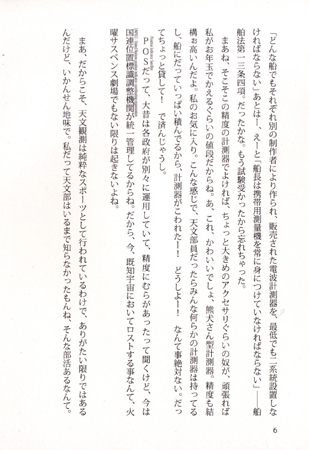 「どんな船でもそれぞれ別の制作者により作られ、販売された電波計測器を、最低でも二系統設置しな
ければならない」あとは…、えーと「船長は携帯用測量機を常に身につけていなければならない」――船
舶法第一三条四項。だったかな。もう試験受かったから忘れちゃった。
まあね、そこそこの精度の計測器でよければ、ちょっと大きめのアクセサリぐらいの奴が、頑張れば
私がお年玉でかえるぐらいの値段だからね。あ、これ、かわいいでしょ。熊犬さん型計測器。精度も結
構ぉ高いんだよ。私のお気に入り。こんな感じで、天文部員だったらみんな何らかの計測器は持ってる
し、船にだっていっぱい積んでるから、計測器がこわれたー！　どうしよー！　なんて事絶対ない。だっ
てちょっと貸して！　で済んじゃうし。
ＰＯＳだって、大昔は各政府が別々に運用していて、精度にむらがあったって聞くけど、今は
国連位置標識調整機関が統一管理してるからね。だから、今、既知宇宙においてロストする事なんて、火
曜サスペンス劇場でもない限りは起きないよね。
まあ、だからこそ、天文観測は純粋なスポーツとして行われているわけで、ありがたい限りではある
んだけど、いかんせん地味で。私だって天文部にはいるまで知らなかったもんね、そんな部活あるなんて。
6